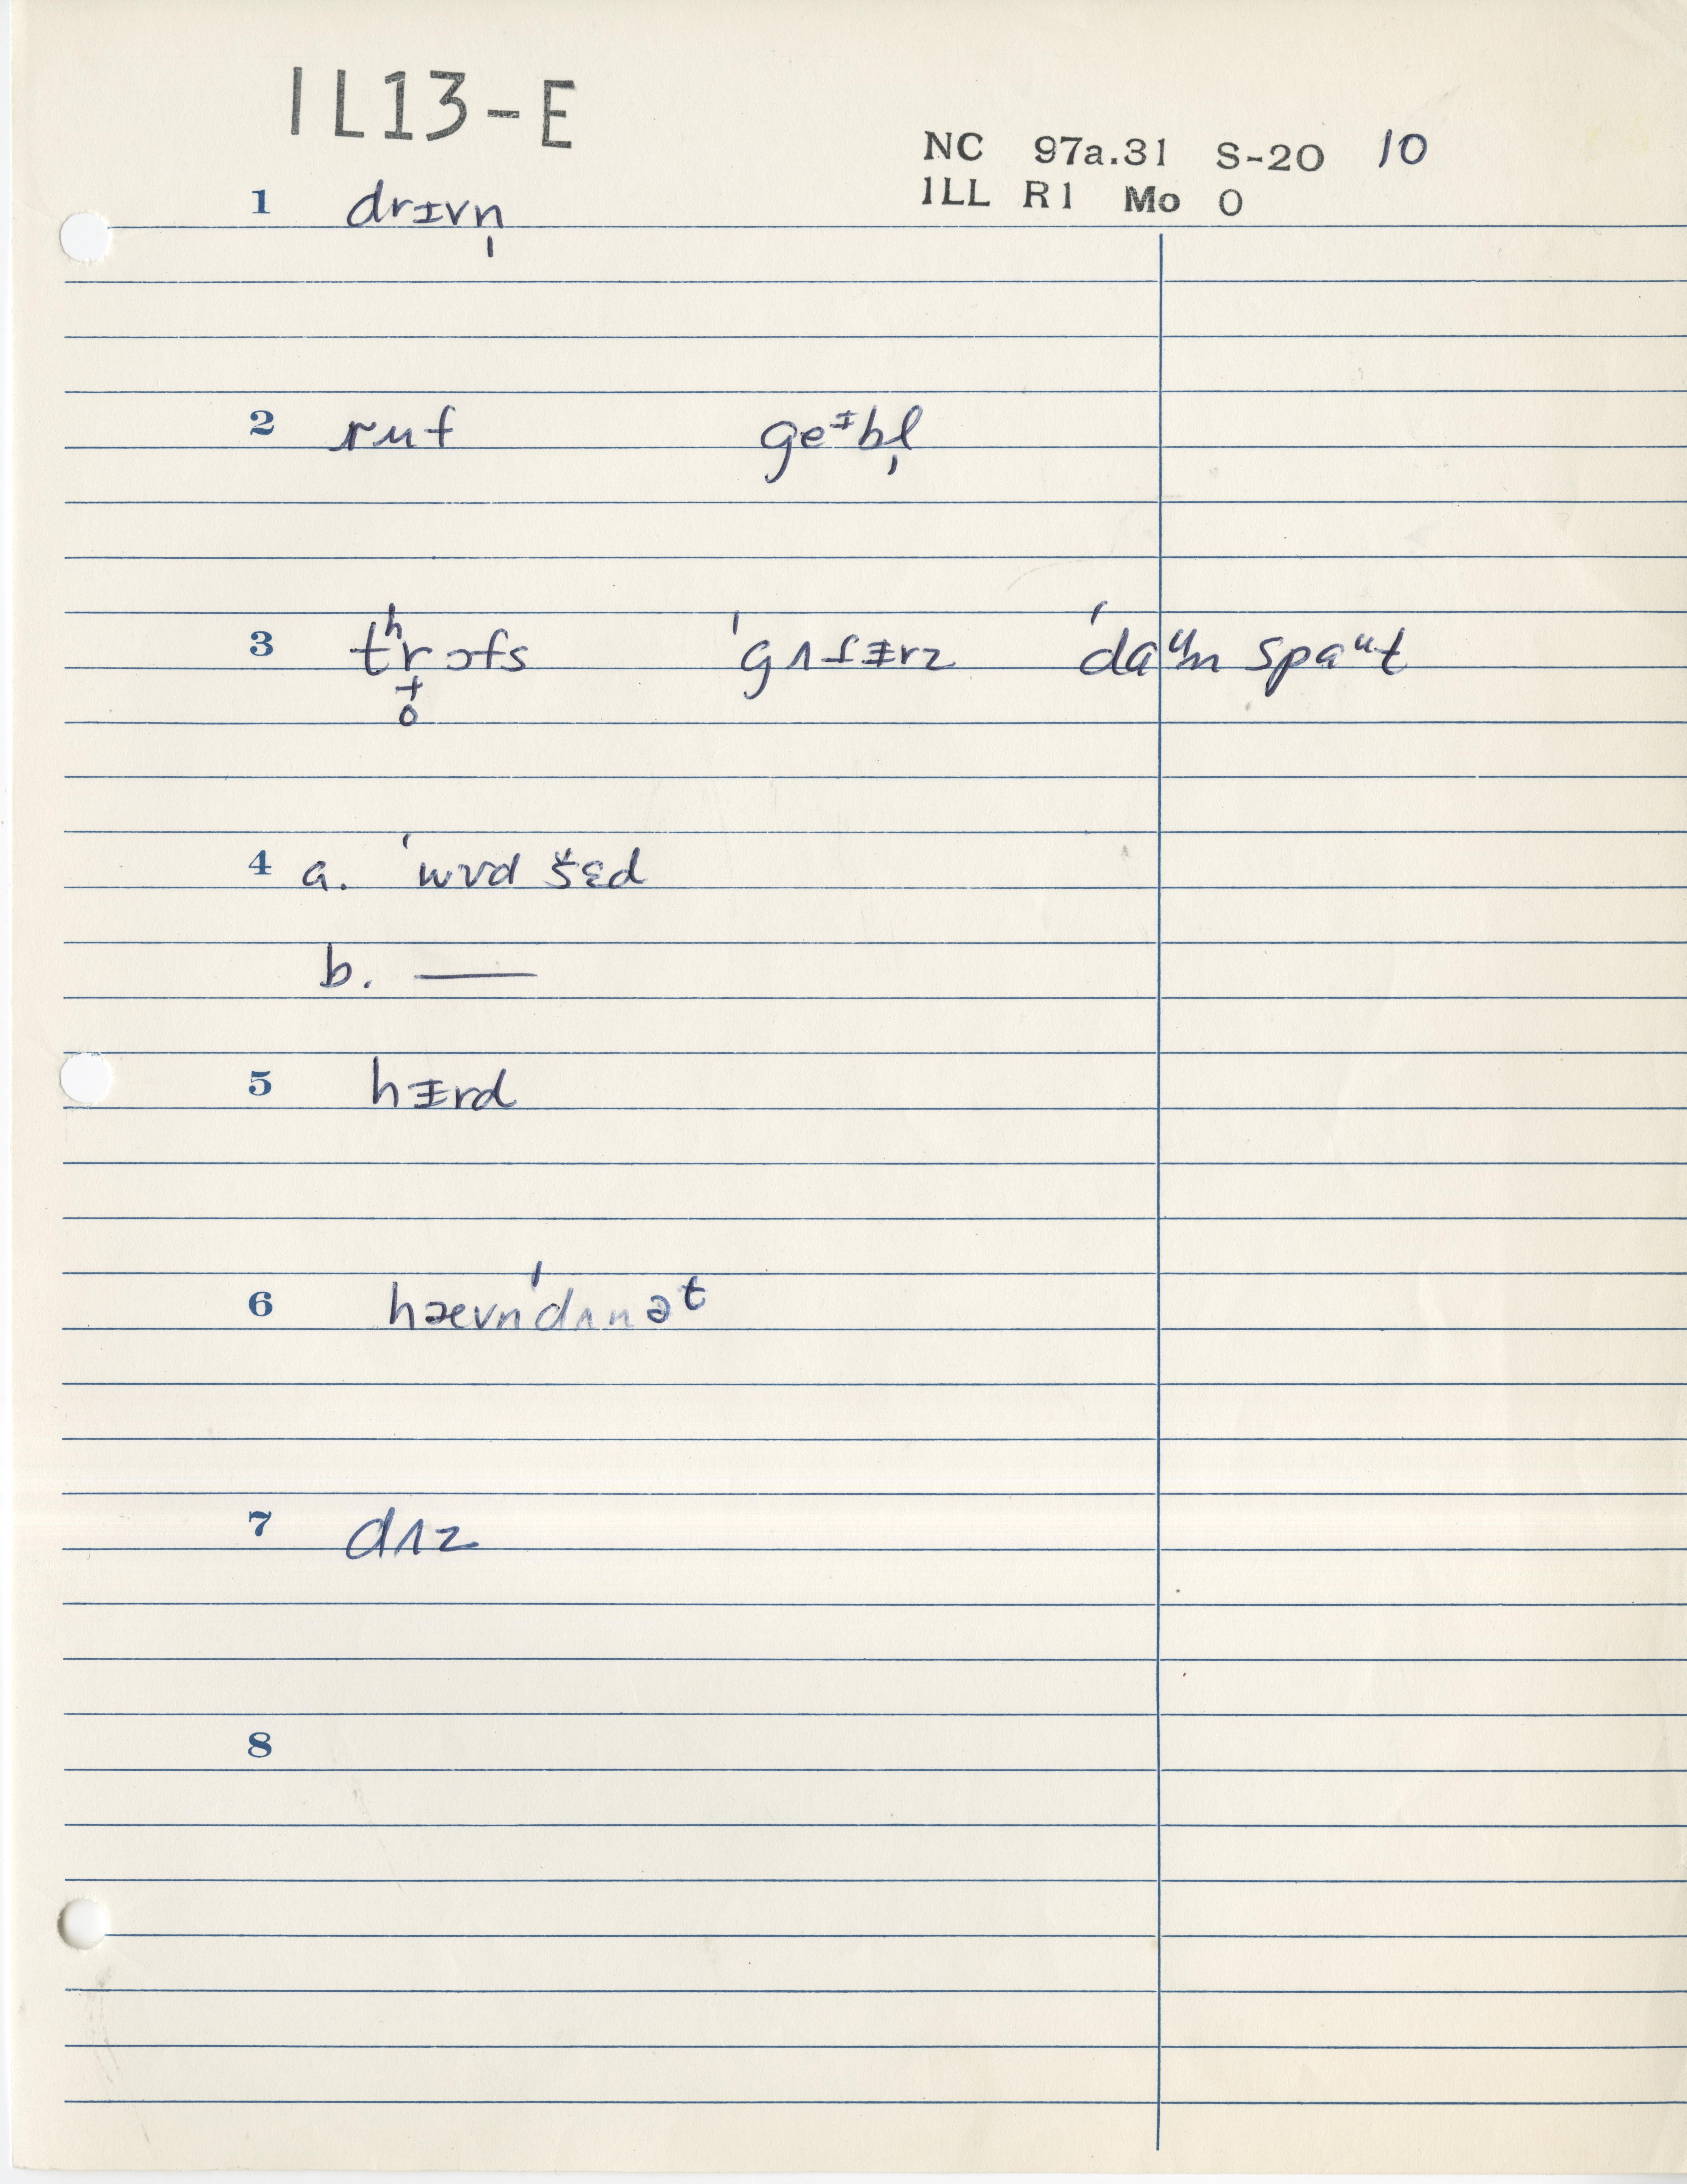 IL13-E
NC 97a.31 S-20 10
ILL R1 Mo O
1 drɪvn̩
2 ruf geᵻbl̩
3 tʰr̟̊ɔfs ˈgʌfᵻrz ˈdaᵘn spaᵘt
4 a. ˈwʊd šɛd
b. —
5 hᵻrd
6 hævnˈdʌnəᵗ
7 dʌz
8